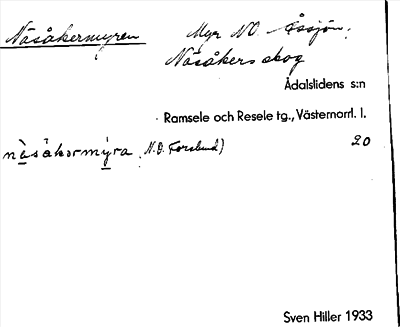 Näsåkermyren Myr NO. Åssjön,
Näsåkers skog
Ådalslidens s:n
Ramsele och Resele tg., Västernorrl. l.
näsåkərmy̲ra N.O. Forslund) 20
Sven Hiller 1933